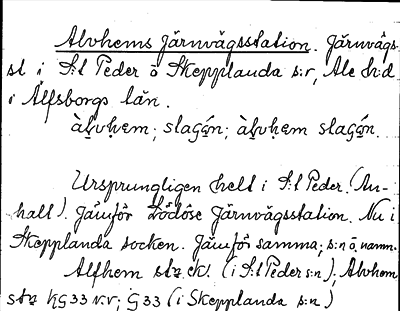 Alvhems Järnvägsstation. Järnvägs-
st i S:t Peder o Skepplanda s:r, Ale h:d
i Älfsborgs län.
àlvhem; slagån; àlvhem slagån.
Ursprungligen helt i S:t Peder. (An-
hall). Jämför Lödöse Järnvägsstation. Nu i
Skepplanda socken. Jämför samma, s:n o. namn.
Alfhem stn ek. (i S:t Peder s:n); Alvhem
stn KG33 v.v; G33 (i Skepplanda s:n)